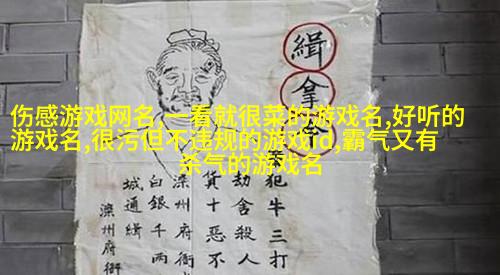 伤感游戏网名,一看就很菜的游戏名,好听的
游戏名,很污但不违规的游戏id,霸气又有
杀气的游戏名
緝拿
犯牛三打
劫舍殺人
貨十惡不
滦州府衙
白銀千兩
城通緝
滦州府衙